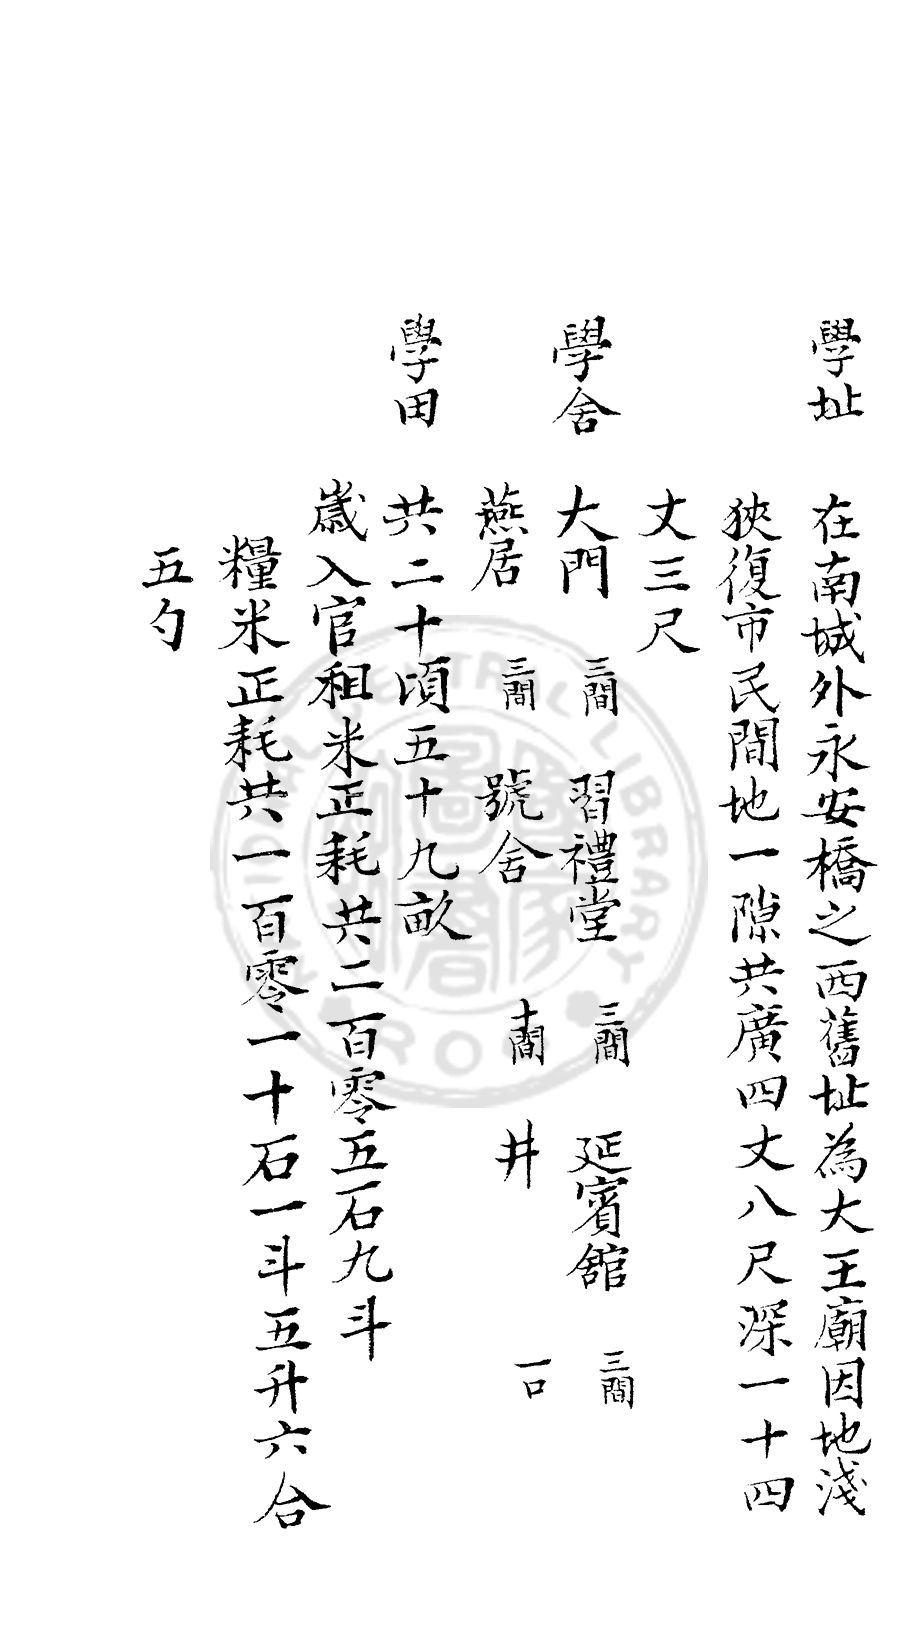 學址
在南城外永安橋之西舊址為大王廟因地淺
狹復市民間地一隙共廣四丈八尺深一十四
丈三尺
學舍
大門 三間 習禮堂 三間 延賓館 三間
燕居 三間 號舍 十間 井 一口
學田
共二十頃五十九畝
歲入官租米正耗共二百零五石九斗
糧米正耗共一百零一十石一斗五升六合
五勺
CENTRAL LIBRARY